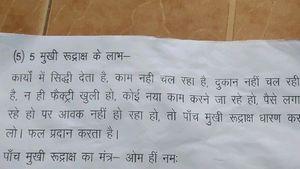 (5) 5 मुखी रूद्राक्ष के लाभ–
कार्यो में सिद्धी देता है, काम नही चल रहा है, दुकान नहीं चल रही
है, न ही फैक्ट्री खुली हो, कोई नया काम करने जा रहे हो, पैसे लगा
रहे हो पर आवक नहीं हो रहा हो, तो पाँच मुखी रूद्राक्ष धारण कर
लो। फल प्रदान करता है।
पाँच मुखी रूद्राक्ष का मंत्र– ओम हीं नमः